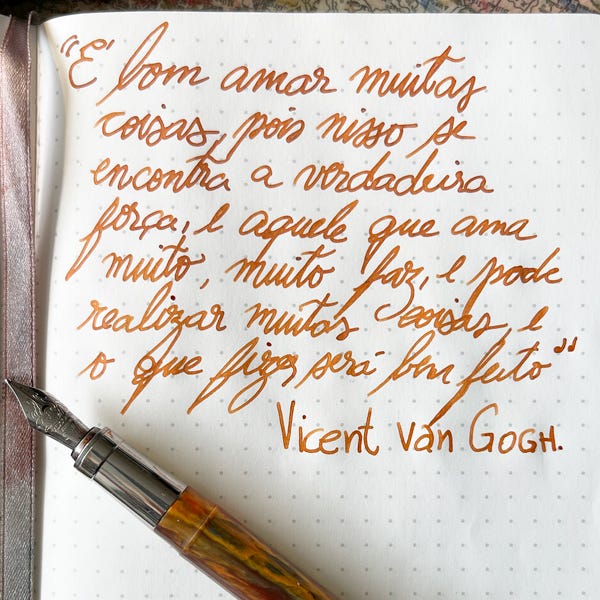 "É bom amar muitas
coisas, pois nisso se
encontra a verdadeira
força, e aquele que ama
muito, muito faz, e pode
realizar muitas coisas, e
o que fizer será bem feito"
Vicent van GOGH.